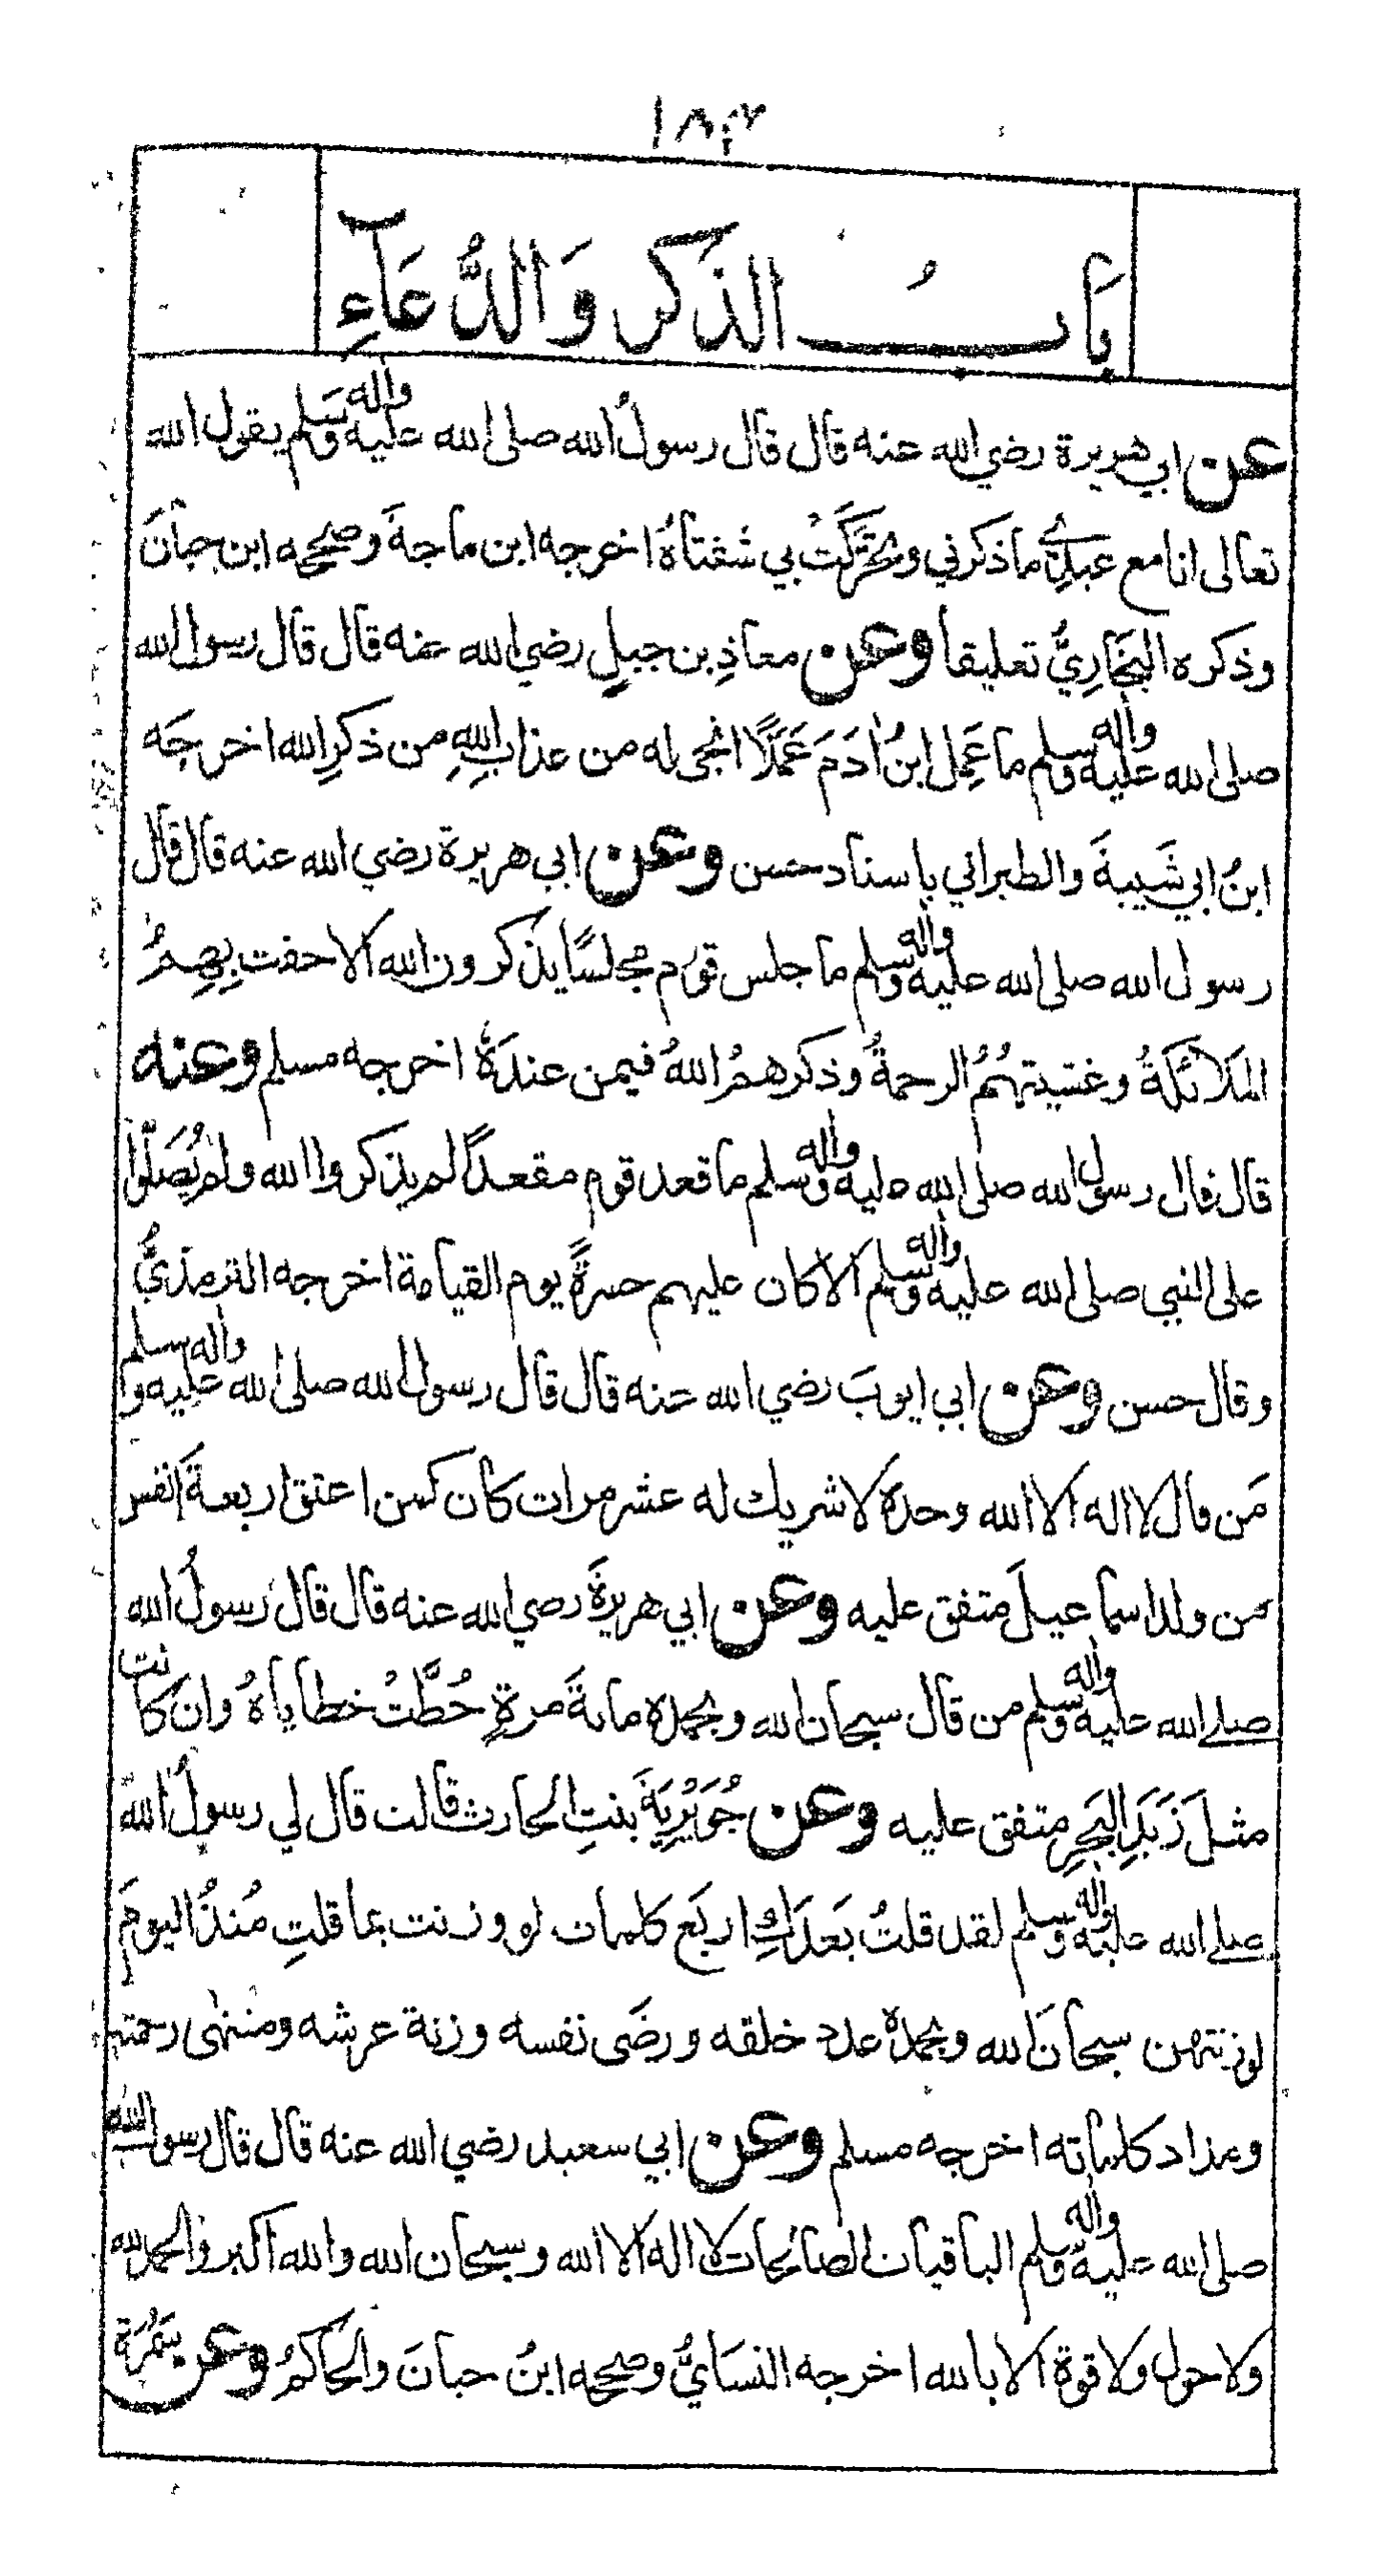 ١٨٣
بَابُ الذكر وَالدُّعَآءِ
عن ابي هريرة رضي الله عنه قال قال رسولُ الله صلى الله عليه واله وسلم يقول الله
تعالى انا مع عبدِي ما ذكرني وتحرَّكَتْ بي شفتاهُ اخرجه ابن ماجةَ وصححه ابن حبانَ
وذكره البخَارِيُّ تعليقا وعن معاذِ بن جبلٍ رضي الله عنه قال قال رسول الله
صلى الله عليه واله وسلم ما عَمِل ابنُ ادَمَ عَمَلًا انجى له من عذابِ اللهِ من ذكرِ الله اخرجَه
ابنُ ابي شَيبةَ والطبراني باسناد حسن وعن ابي هريرة رضي الله عنه قال قال
رسول الله صلى الله عليه واله وسلم ما جلس قوم مجلسًا يذكرون الله الا حفت بِهِمُ
الملَائكَةُ وغشيتهُمُ الرحمةُ وذكرهمُ اللهُ فيمن عندَهُ اخرجه مسلم وعنه
قال قال رسول الله صلى الله عليه واله وسلم ما قعد قوم مقعدًا لم يذكروا الله ولم يُصَلُّوا
على النبي صلى الله عليه واله وسلم الا كان عليهم حسرةً يوم القيامة اخرجه الترمذيُّ
وقال حسن وعن ابي ايوبَ رضي الله عنه قال قال رسول الله صلى الله عليه واله وسلم
مَن قال لا اله الا الله وحدهُ لا شريك له عشر مرات كان كمن اعتق اربعةَ انفس
من ولد اسماعيلَ متفق عليه وعن ابي هريرةَ رضي الله عنه قال قال رسولُ الله
صلى الله عليه واله وسلم من قال سبحان الله وبحمده مايةَ مرةٍ حُطَّتْ خطاياهُ وان كانت
مثلَ زَبَدِ البَحرِ متفق عليه وعن جُوَيْرِيَةَ بنتِ الحارث قالت قال لي رسولُ الله
صلى الله عليه واله وسلم لقد قلتُ بَعدَكِ اربَع كلمات لو وزنت بما قلتِ مُنذُ اليومَ
لوزنتهن سبحانَ الله وبحمدهِ عدد خلقه ورضَى نفسه وزنة عرشه ومنتهى رحمته
ومداد كلماته اخرجه مسلم وعن ابي سعيد رضي الله عنه قال قال رسول الله
صلى الله عليه واله وسلم الباقيات الصالحات لا اله الا الله وسبحان الله والله اكبر والحمد لله
ولا حول ولا قوة الا بالله اخرجه النسَايُّ وصححه ابنُ حبانَ والحاكمُ وعن سَمُرَة